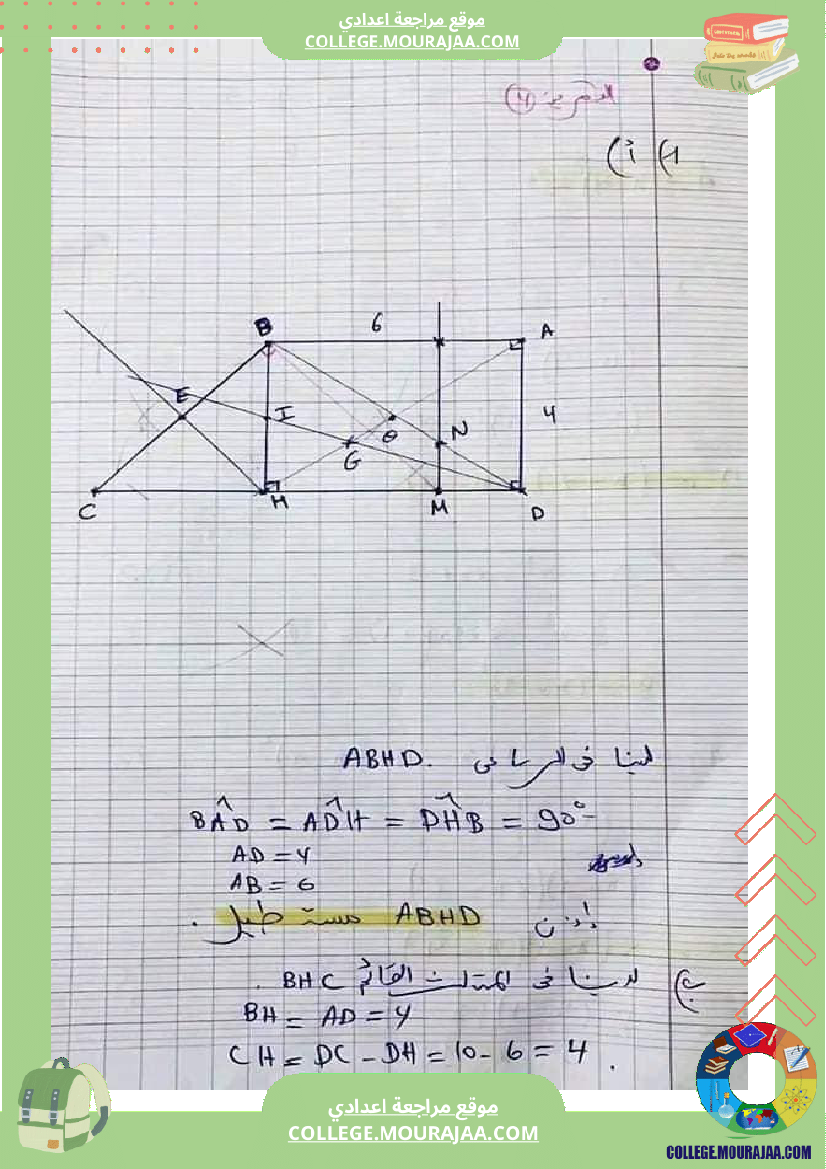 موقع مراجعة اعدادي
COLLEGE.MOURAJAA.COM
التمرين 4
1) أ)
B 6 A
E I 4
O N
G
C H M D
لدينا في الرباعي ABHD.
BÂD = AD̂H = DĤB = 90°
AD = 4
AB = 6
إذن ABHD مستطيل.
ب) لدينا في المثلث القائم BHC.
BH = AD = 4
CH = DC - DH = 10 - 6 = 4.
موقع مراجعة اعدادي
COLLEGE.MOURAJAA.COM
COLLEGE.MOURAJAA.COM